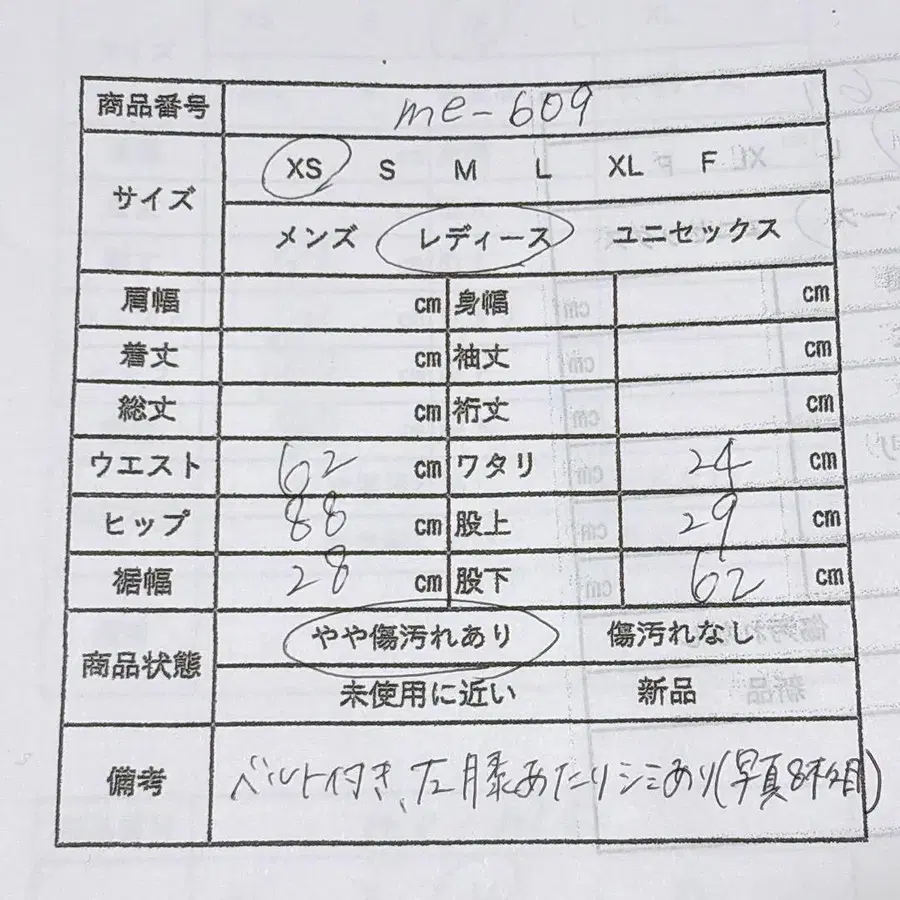 商品番号 me-609
サイズ XS S M L XL F
メンズ レディース ユニセックス
肩幅 cm 身幅 cm
着丈 cm 袖丈 cm
総丈 cm 裄丈 cm
ウエスト 62 cm ワタリ 24 cm
ヒップ 88 cm 股上 29 cm
裾幅 28 cm 股下 62 cm
商品状態 やや傷汚れあり 傷汚れなし
未使用に近い 新品
備考 ベルト付き、左膝あたりシミあり(写真8枚目)